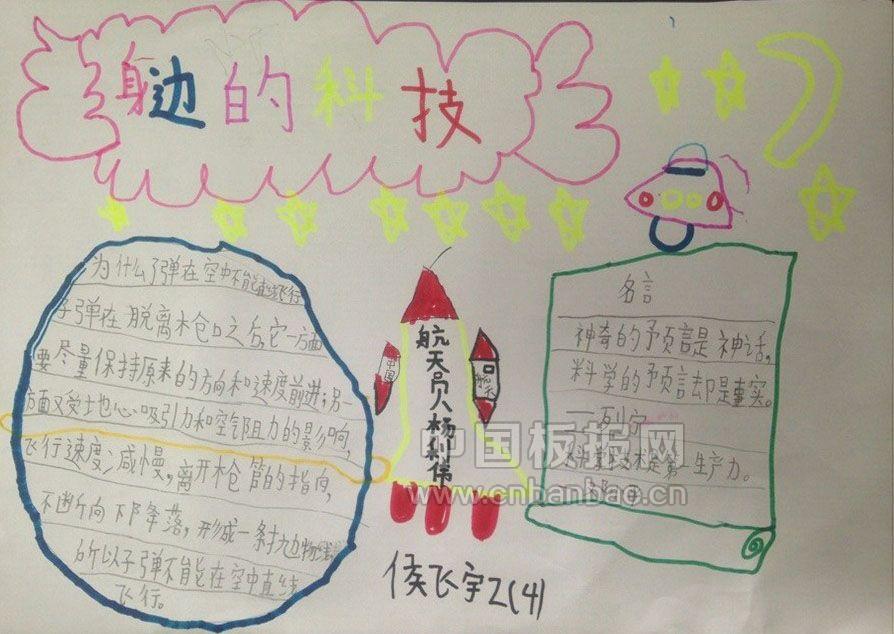 身边的科技
为什么了弹在空中不能直线飞行
子弹在脱离枪口之后,它一方面
要尽量保持原来的方向和速度前进;另一
方面又受土地心吸引力和空气阻力的影响,
飞行速度减慢,离开枪管的指向,
不断向下降落,形成一条抛物线
所以子弹不能在空中直线
飞行。
中国
航天员杨利伟
航天
侯飞宇2(4)
名言
神奇的予预言是神话,
科学的予预言却是事实。
—列宁
科学技术是第一生产力。
中国板报网
www.cnbanbao.cn